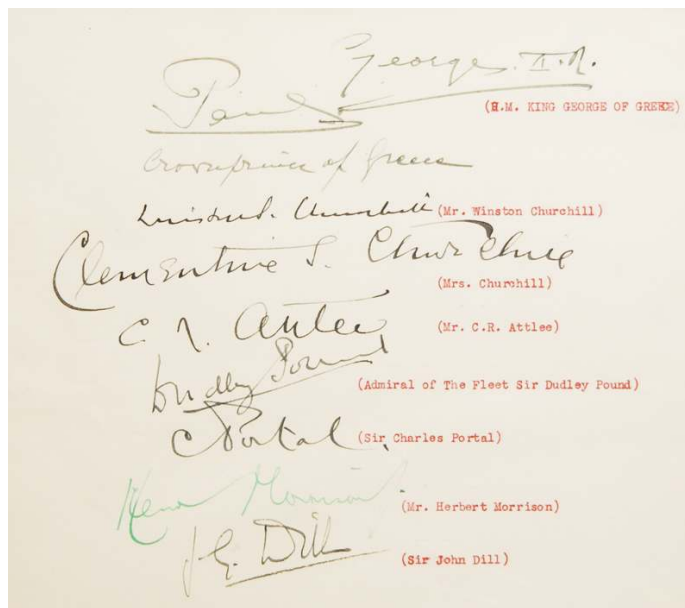 George. II. R.
Paul
(H.M. KING GEORGE OF GREECE)
Crownprince of Greece
Winston S. Churchill (Mr. Winston Churchill)
Clementine S. Churchill
(Mrs. Churchill)
C. R. Attlee (Mr. C.R. Attlee)
Dudley Pound
(Admiral of The Fleet Sir Dudley Pound)
C Portal. (Sir Charles Portal)
Morrison
(Mr. Herbert Morrison)
J. G. Dill
(Sir John Dill)